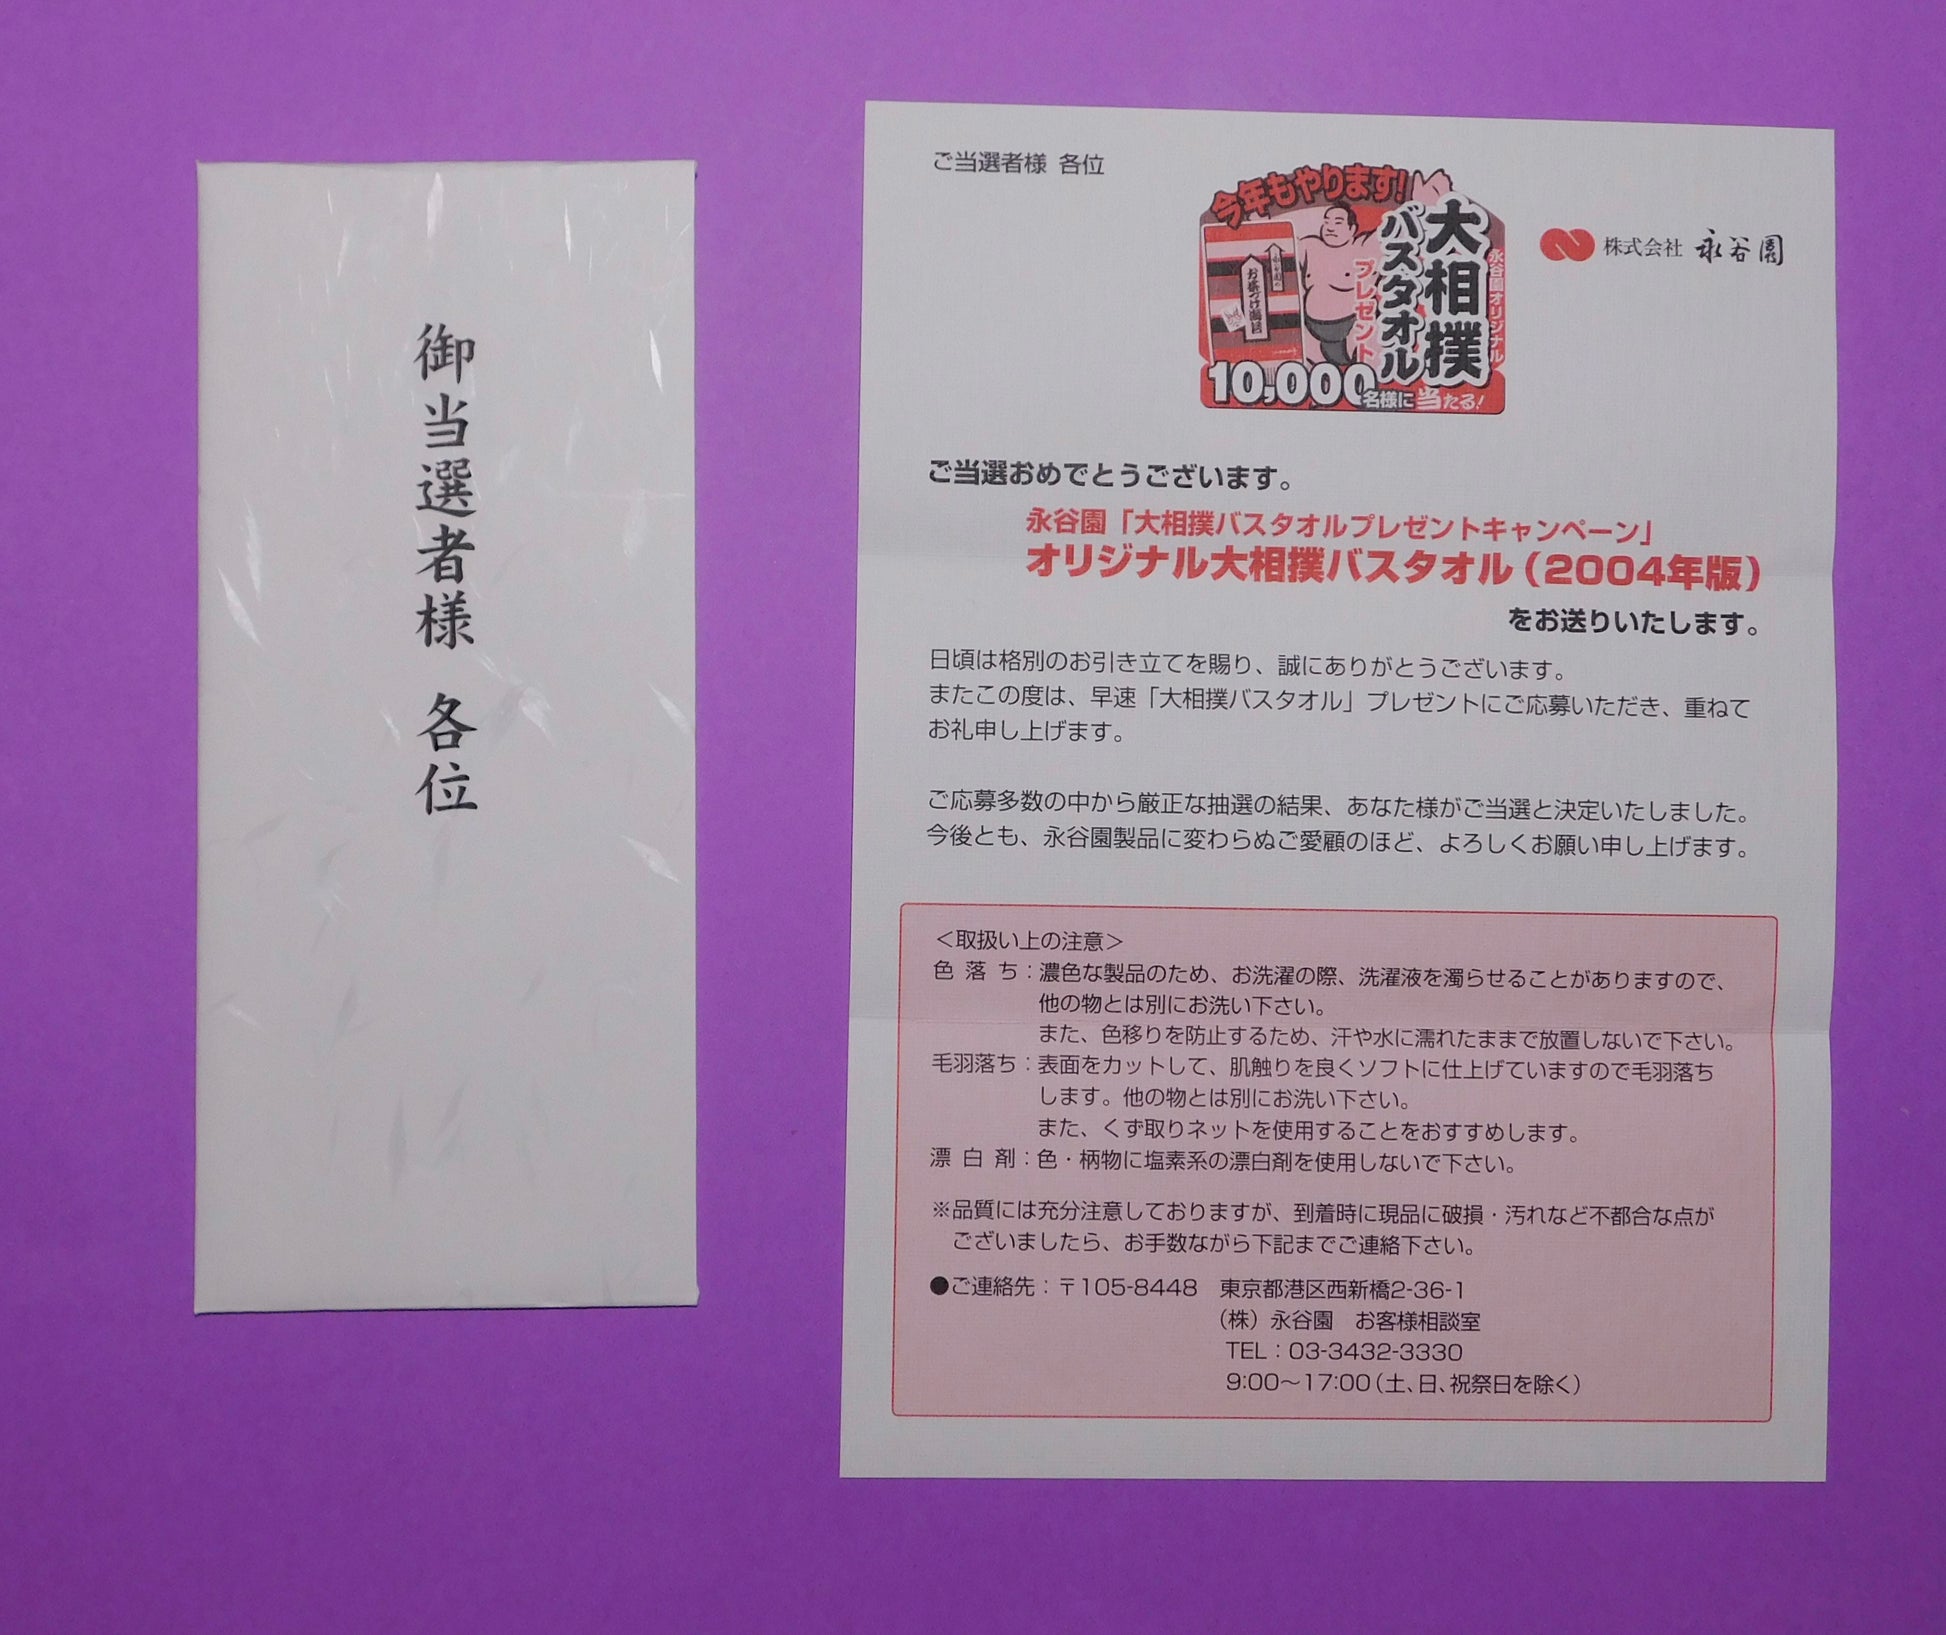 御当選者様 各位
ご当選者様 各位
今年もやります!
永谷園オリジナル
大相撲
バスタオル
プレゼント
お茶づけ海苔
10,000名様に当たる!
株式会社 永谷園
ご当選おめでとうございます。
永谷園「大相撲バスタオルプレゼントキャンペーン」
オリジナル大相撲バスタオル(2004年版)
をお送りいたします。
日頃は格別のお引き立てを賜り、誠にありがとうございます。
またこの度は、早速「大相撲バスタオル」プレゼントにご応募いただき、重ねて
お礼申し上げます。
ご応募多数の中から厳正な抽選の結果、あなた様がご当選と決定いたしました。
今後とも、永谷園製品に変わらぬご愛顧のほど、よろしくお願い申し上げます。
<取扱い上の注意>
色 落 ち:濃色な製品のため、お洗濯の際、洗濯液を濁らせることがありますので、
他の物とは別にお洗い下さい。
また、色移りを防止するため、汗や水に濡れたままで放置しないで下さい。
毛羽落ち:表面をカットして、肌触りを良くソフトに仕上げていますので毛羽落ち
します。他の物とは別にお洗い下さい。
また、くず取りネットを使用することをおすすめします。
漂 白 剤:色・柄物に塩素系の漂白剤を使用しないで下さい。
※品質には充分注意しておりますが、到着時に現品に破損・汚れなど不都合な点が
ございましたら、お手数ながら下記までご連絡下さい。
●ご連絡先:〒105-8448 東京都港区西新橋2-36-1
(株)永谷園 お客様相談室
TEL:03-3432-3330
9:00～17:00(土、日、祝祭日を除く)